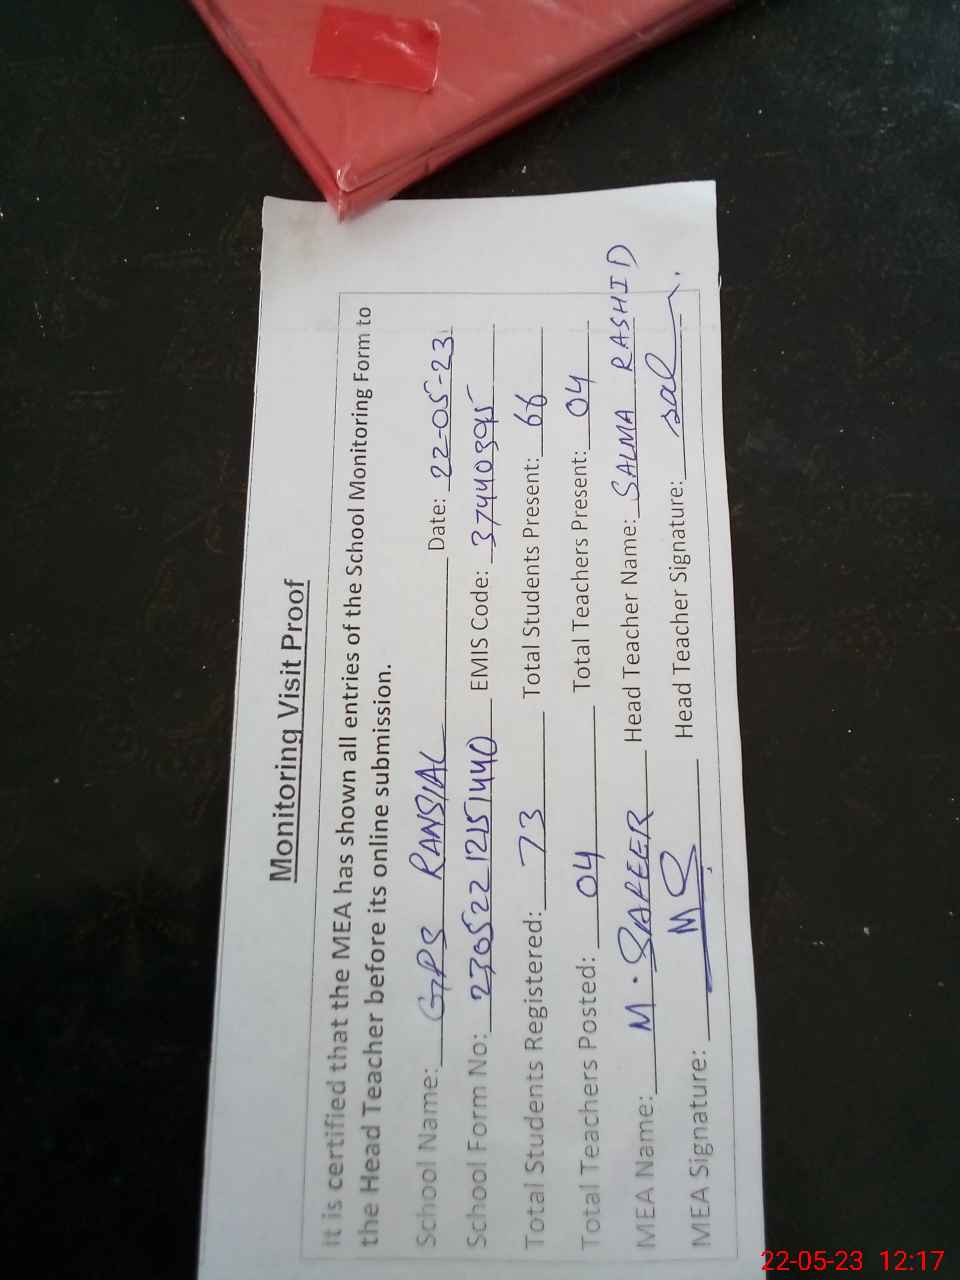 Monitoring Visit Proof
It is certified that the MEA has shown all entries of the School Monitoring Form to
the Head Teacher before its online submission.
School Name: GPS RANSIAL Date: 22-05-23
School Form No: 23052212151440 EMIS Code: 37440395
Total Students Registered: 73 Total Students Present: 66
Total Teachers Posted: 04 Total Teachers Present: 04
MEA Name: M. SAFEER Head Teacher Name: SALMA RASHID
MEA Signature: MS Head Teacher Signature: sal
22-05-23 12:17